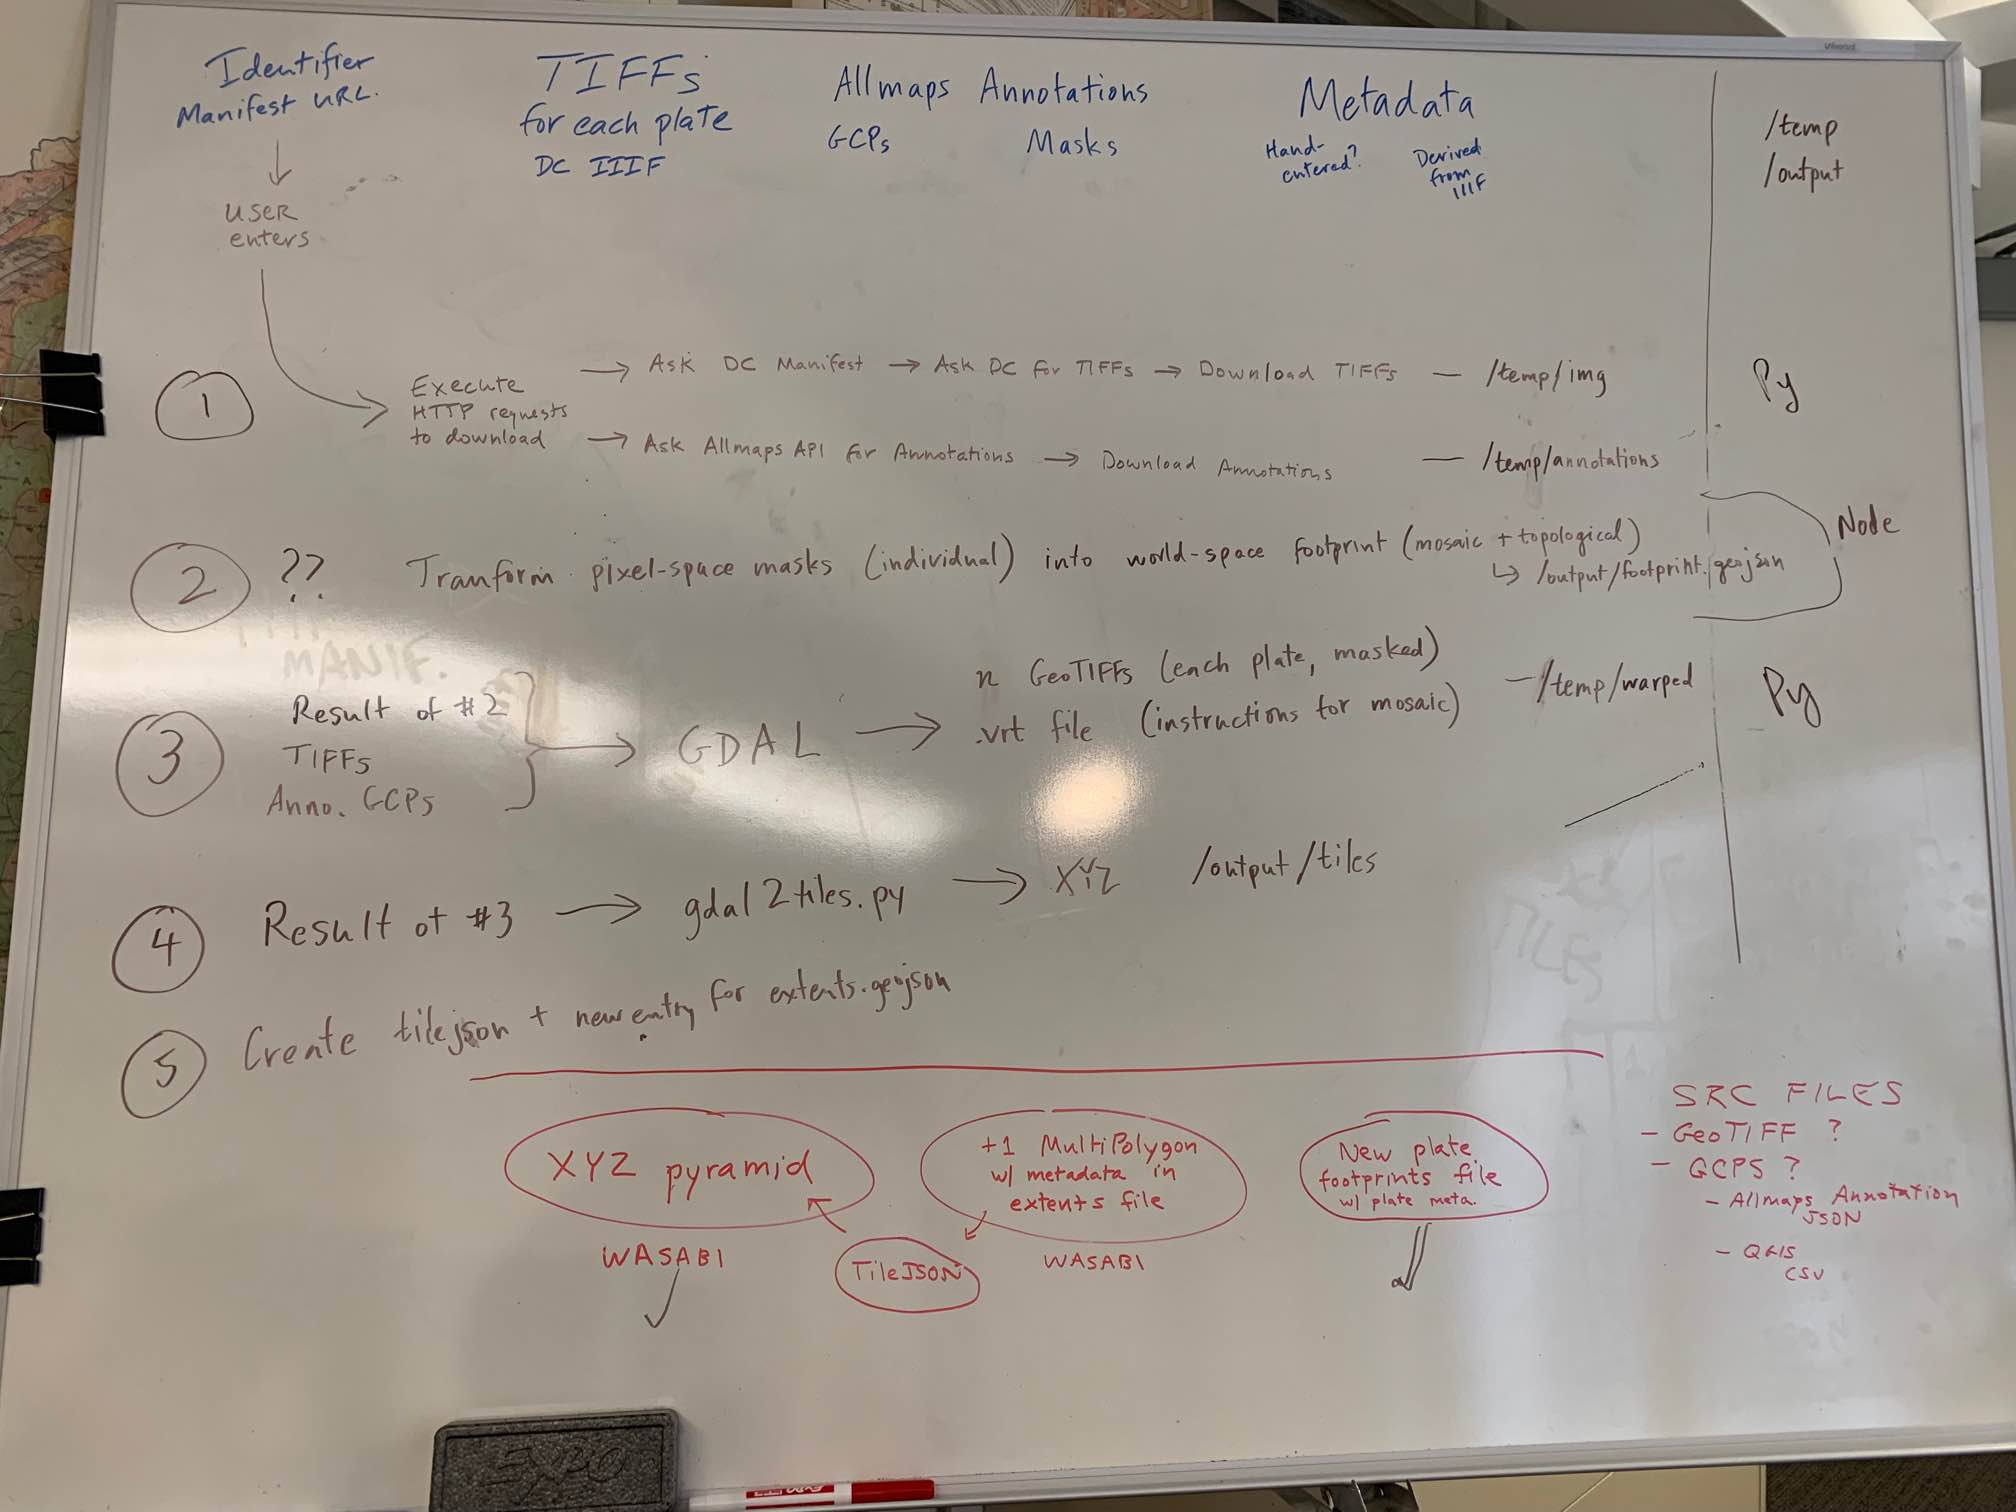 Identifier
Manifest URL.
USER
enters
TIFFs
for each plate
DC IIIF
Allmaps Annotations
GCPs Masks
Metadata
Hand-
entered?
Derived
from
IIIF
/temp
/output
1
Execute
HTTP requests
to download
→ Ask DC Manifest → Ask DC for TIFFs → Download TIFFs — /temp/img
→ Ask Allmaps API for Annotations → Download Annotations — /temp/annotations
Py
2 ?? Tranform pixel-space masks (individual) into world-space footprint (mosaic + topological)
↳ /output/footprint.geojson
Node
MANIF.
3
Result of #2
TIFFs
Anno. GCPs
→ GDAL →
n GeoTIFFs (each plate, masked)
.vrt file (instructions for mosaic)
— /temp/warped
Py
4 Result of #3 → gdal2tiles.py → XYZ /output/tiles
5 Create tilejson + new entry for extents.geojson
XYZ pyramid
WASABI
TileJSON
+1 MultiPolygon
w/ metadata in
extents file
WASABI
New plate
footprints file
w/ plate meta.
SRC FILES
- GeoTIFF ?
- GCPS ?
- Allmaps Annotation
JSON
- QGIS
CSV
EXPO